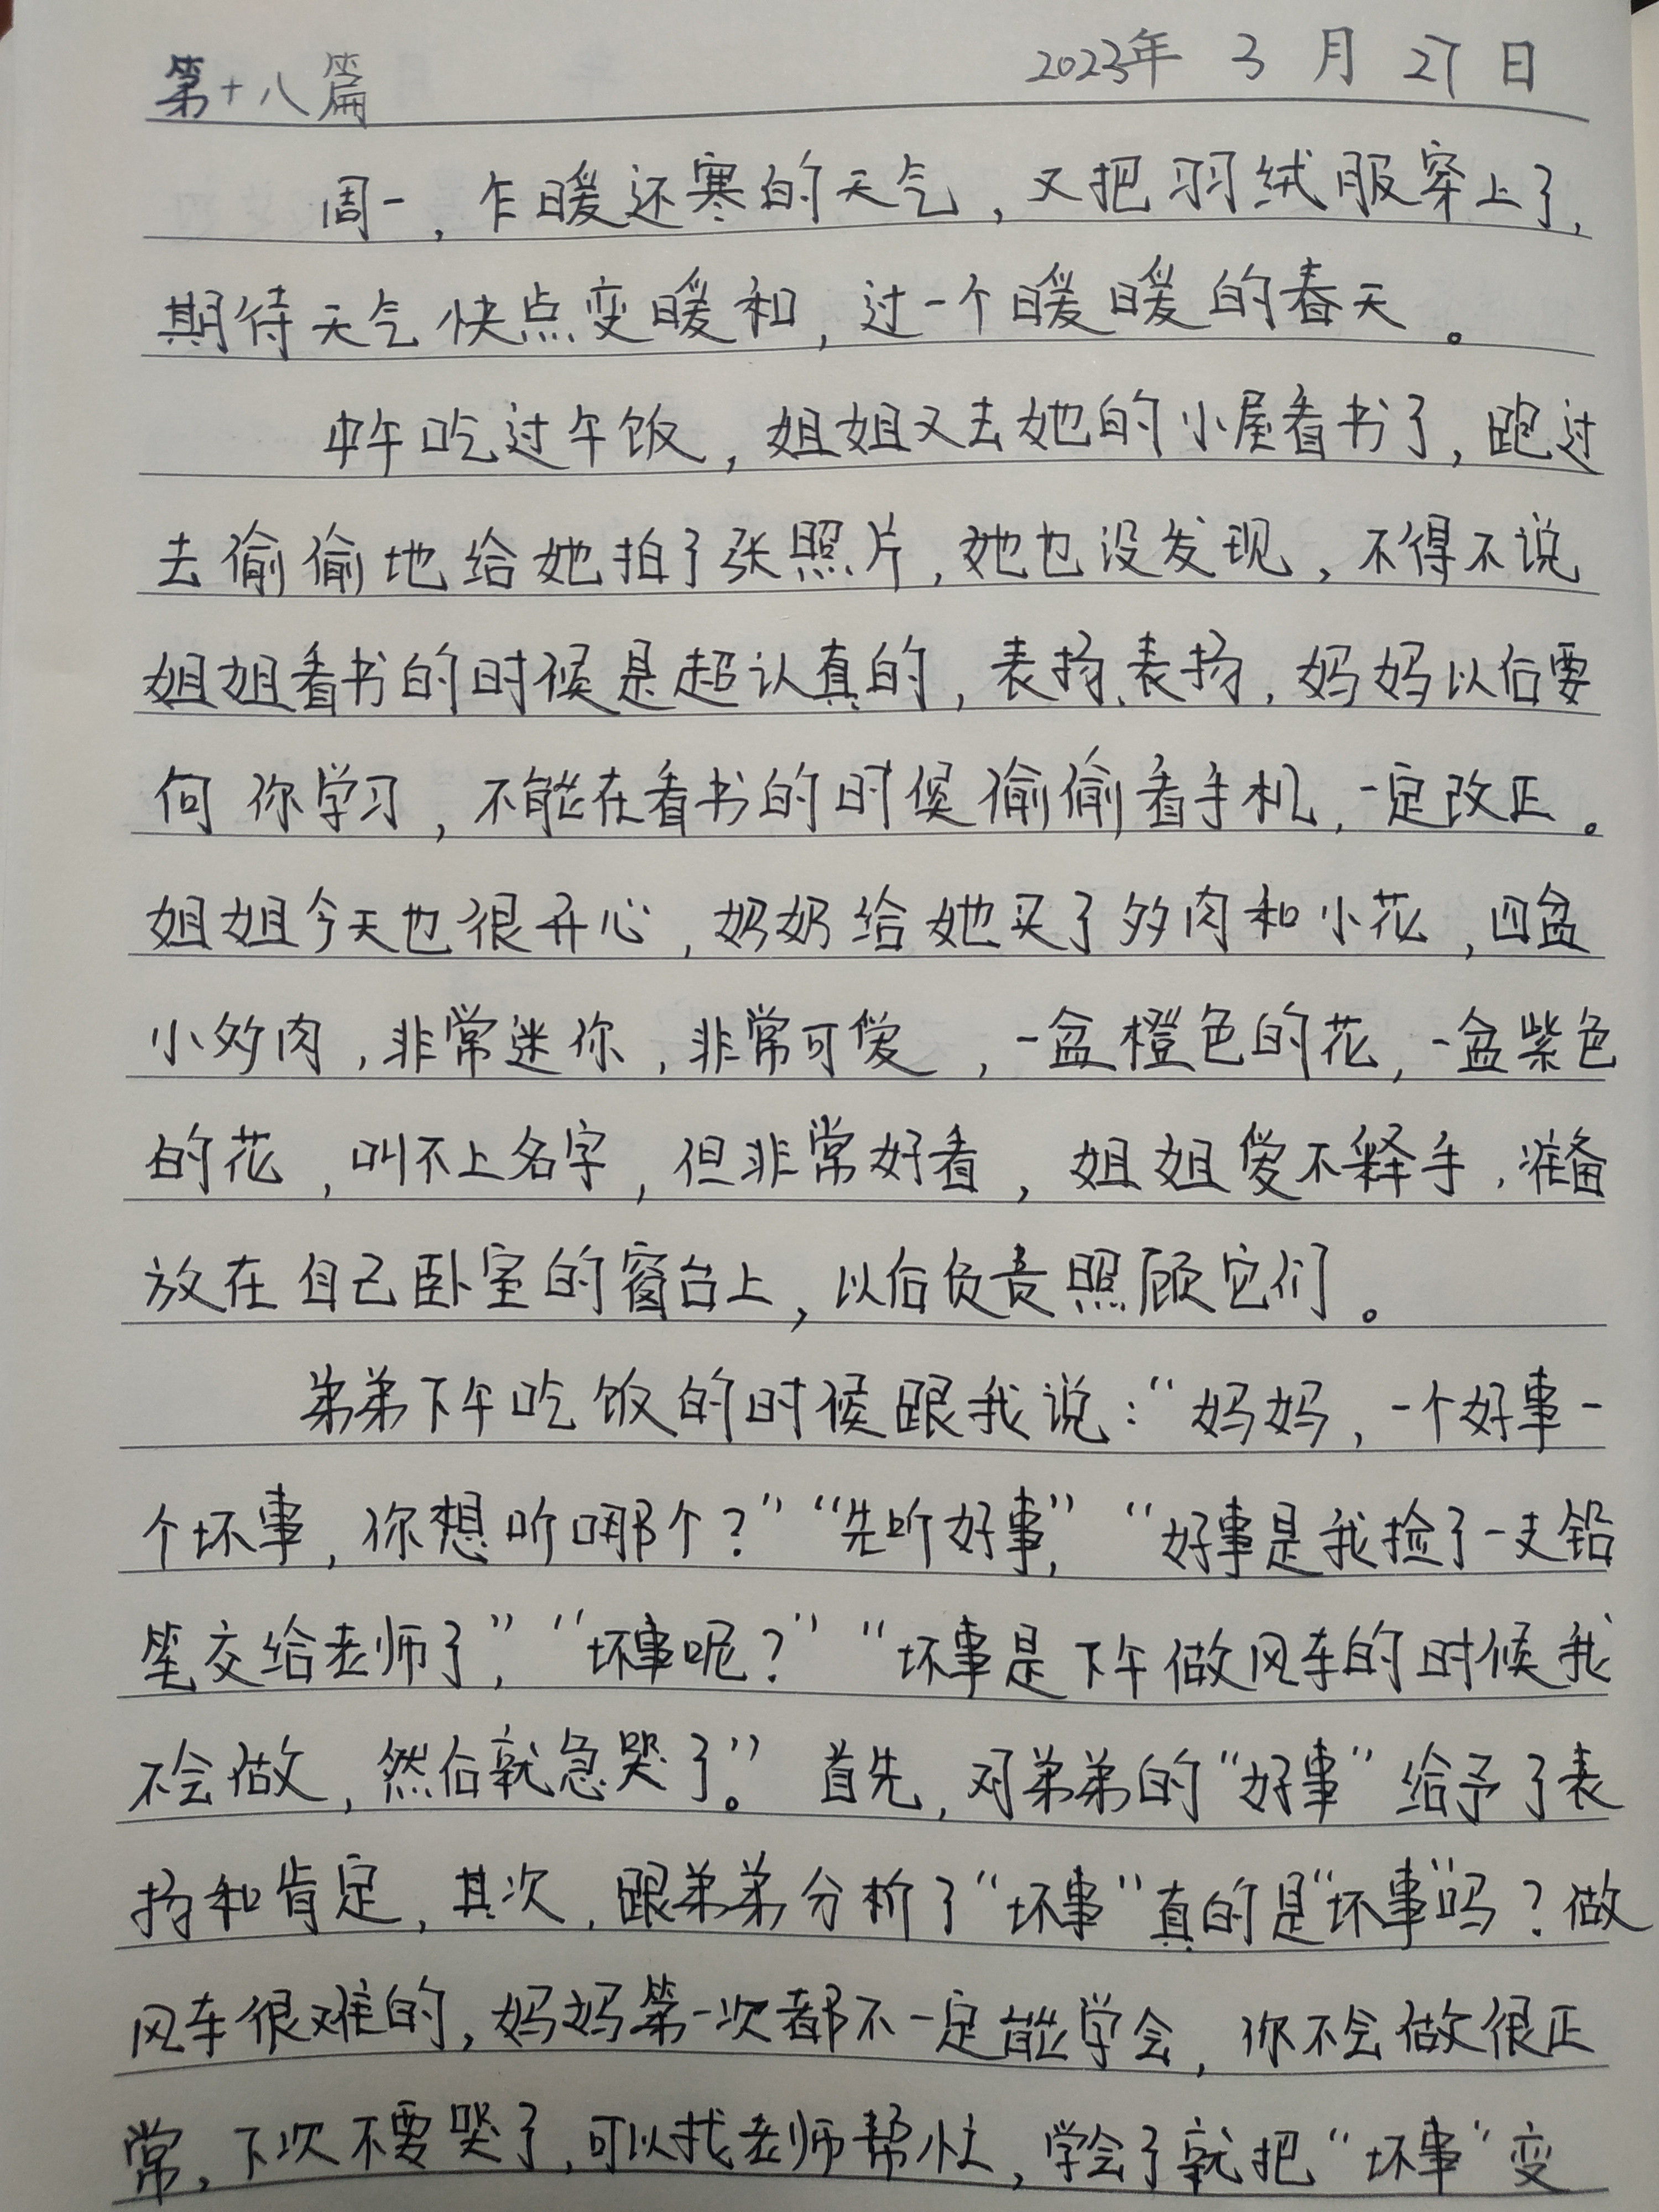 第十八篇 2023年 3 月 27 日
周一，乍暖还寒的天气，又把羽绒服穿上了，
期待天气快点变暖和，过一个暖暖的春天。
中午吃过午饭，姐姐又去她的小屋看书了，跑过
去偷偷地给她拍了张照片，她也没发现，不得不说
姐姐看书的时候是超认真的，表扬、表扬，妈妈以后要
向你学习，不能在看书的时候偷偷看手机，一定改正。
姐姐今天也很开心，奶奶给她买了多肉和小花，四盆
小多肉，非常迷你，非常可爱，一盆橙色的花，一盆紫色
的花，叫不上名字，但非常好看，姐姐爱不释手，准备
放在自己卧室的窗台上，以后负责照顾它们。
弟弟下午吃饭的时候跟我说：“妈妈，一个好事一
个坏事，你想听哪个？”“先听好事，”“好事是我捡了一支铅
笔交给老师了，”“坏事呢？”“坏事是下午做风车的时候我
不会做，然后就急哭了。”首先，对弟弟的“好事”给予了表
扬和肯定，其次，跟弟弟分析了“坏事”真的是“坏事”吗？做
风车很难的，妈妈第一次都不一定能学会，你不会做很正
常，下次不要哭了，可以找老师帮忙，学会了就把“坏事”变